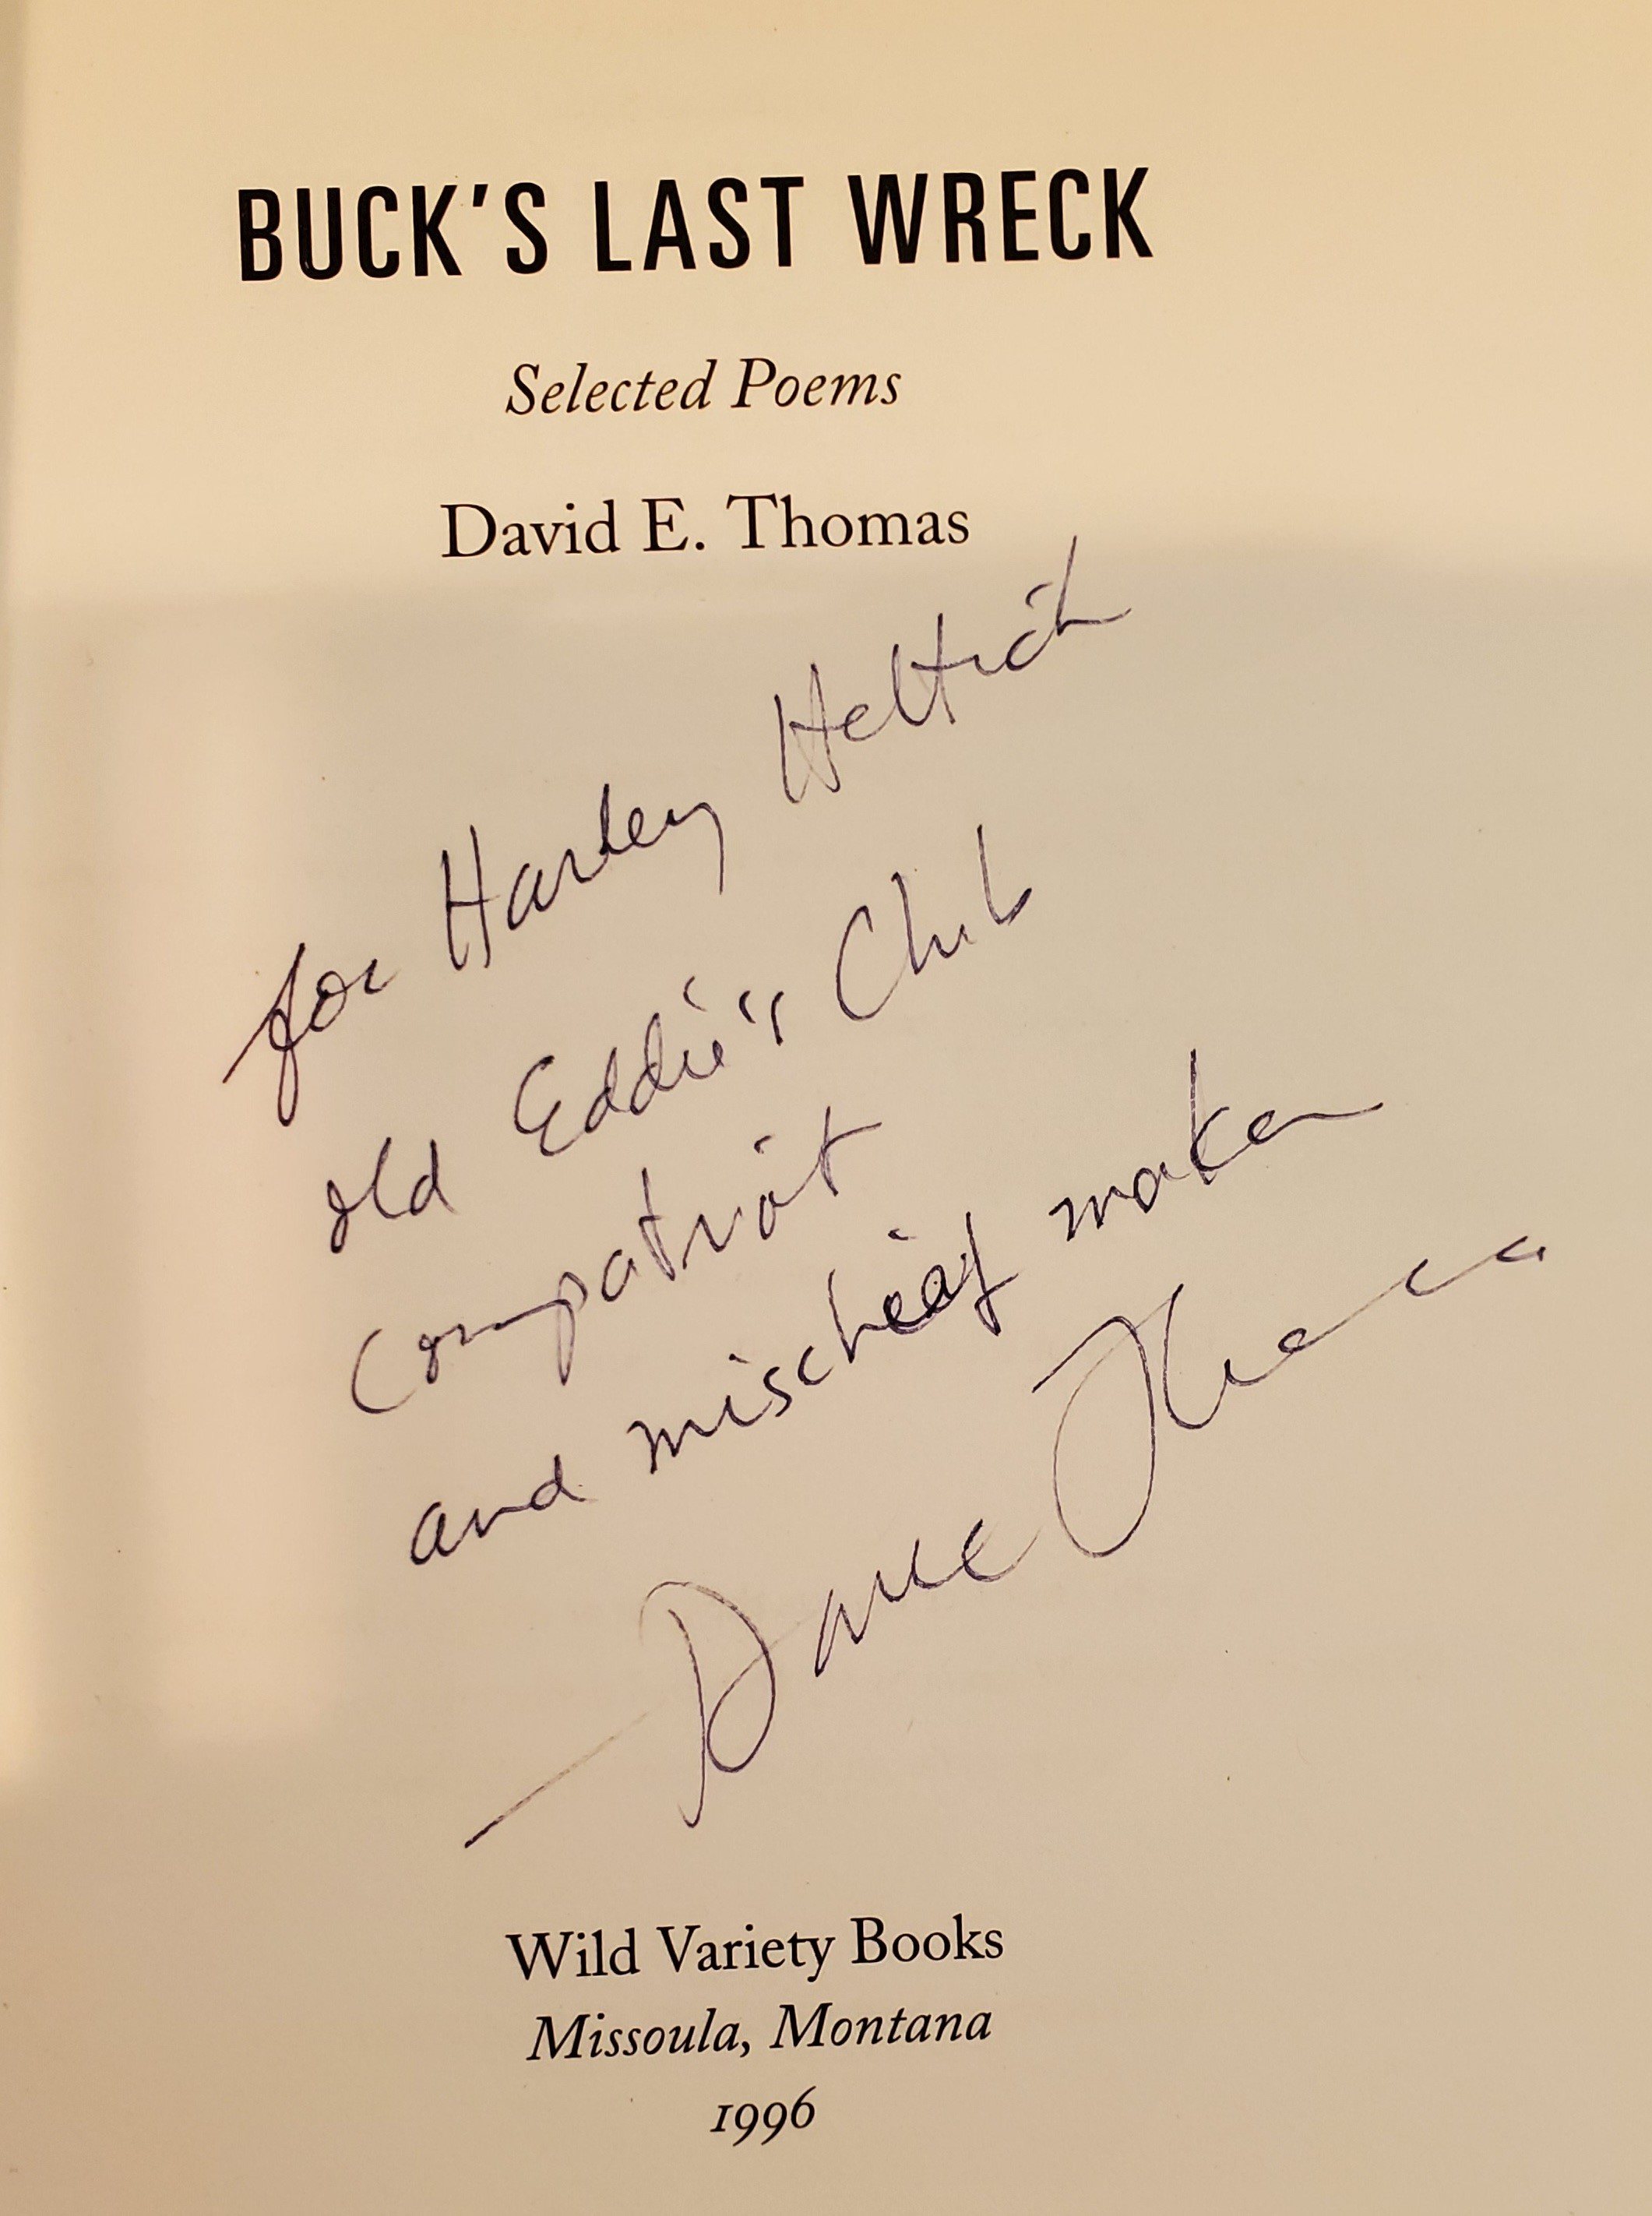 BUCK'S LAST WRECK
Selected Poems
David E. Thomas
for Harley Hettrich
old Eddie's Club
compatriot
and mischeif maker
— Dave Thomas
Wild Variety Books
Missoula, Montana
1996